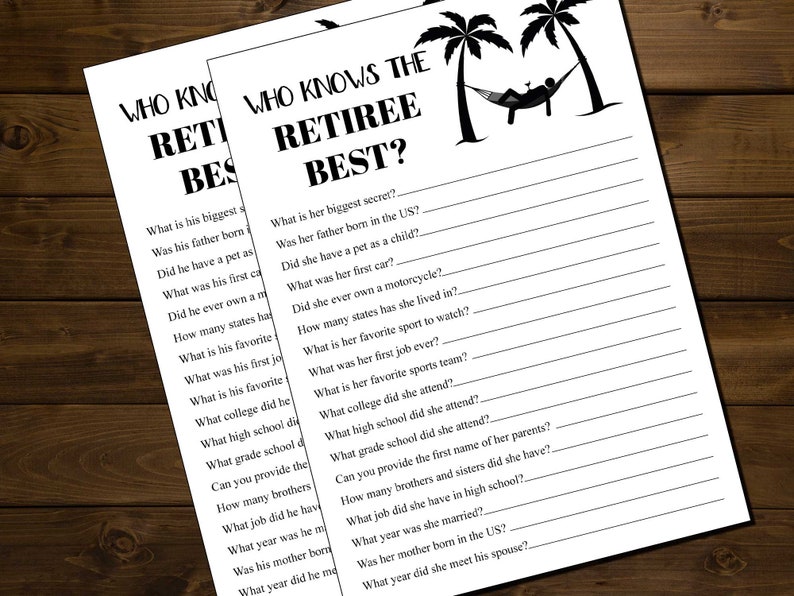 WHO KNO
RETI
BES
What is his biggest s
Was his father born i
Did he have a pet as
What was his first ca
Did he ever own a m
How many states has
What is his favorite s
What was his first jo
What is his favorite s
What college did he
What high school di
What grade school di
Can you provide the
How many brothers
What job did he hav
What year was he m
Was his mother born
What year did he me
WHO KNOWS THE
RETIREE
BEST?
What is her biggest secret?
Was her father born in the US?
Did she have a pet as a child?
What was her first car?
Did she ever own a motorcycle?
How many states has she lived in?
What is her favorite sport to watch?
What was her first job ever?
What is her favorite sports team?
What college did she attend?
What high school did she attend?
What grade school did she attend?
Can you provide the first name of her parents?
How many brothers and sisters did she have?
What job did she have in high school?
What year was she married?
Was her mother born in the US?
What year did she meet his spouse?